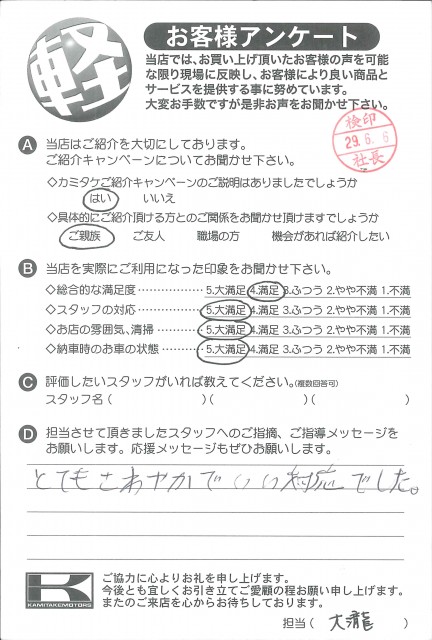 軽
お客様アンケート
当店では、お買い上げ頂いたお客様の声を可能
な限り現場に反映し、お客様により良い商品と
サービスを提供する事に努めています。
大変お手数ですが是非お声をお聞かせ下さい。
検印
29.6.6
社長
A 当店はご紹介を大切にしております。
ご紹介キャンペーンについてお聞かせ下さい。
◇カミタケご紹介キャンペーンのご説明はありましたでしょうか
はい いいえ
◇具体的にご紹介頂ける方とのご関係をお聞かせ頂けますでしょうか
ご親族 ご友人 職場の方 機会があれば紹介したい
B 当店を実際にご利用になった印象をお聞かせ下さい。
◇総合的な満足度……………5.大満足 4.満足 3.ふつう 2.やや不満 1.不満
◇スタッフの対応……………5.大満足 4.満足 3.ふつう 2.やや不満 1.不満
◇お店の雰囲気、清掃…………5.大満足 4.満足 3.ふつう 2.やや不満 1.不満
◇納車時のお車の状態…………5.大満足 4.満足 3.ふつう 2.やや不満 1.不満
C 評価したいスタッフがいれば教えてください。(複数回答可)
スタッフ名( )( )( )
D 担当させて頂きましたスタッフへのご指摘、ご指導メッセージを
お願いします。応援メッセージもぜひお願いします。
とてもさわやかでいい対応でした。
K
KAMITAKEMOTORS
ご協力に心よりお礼を申し上げます。
今後とも宜しくお引き立てご愛顧の程お願い申し上げます。
またのご来店を心からお待ちしております。
担当( 大瀧 )